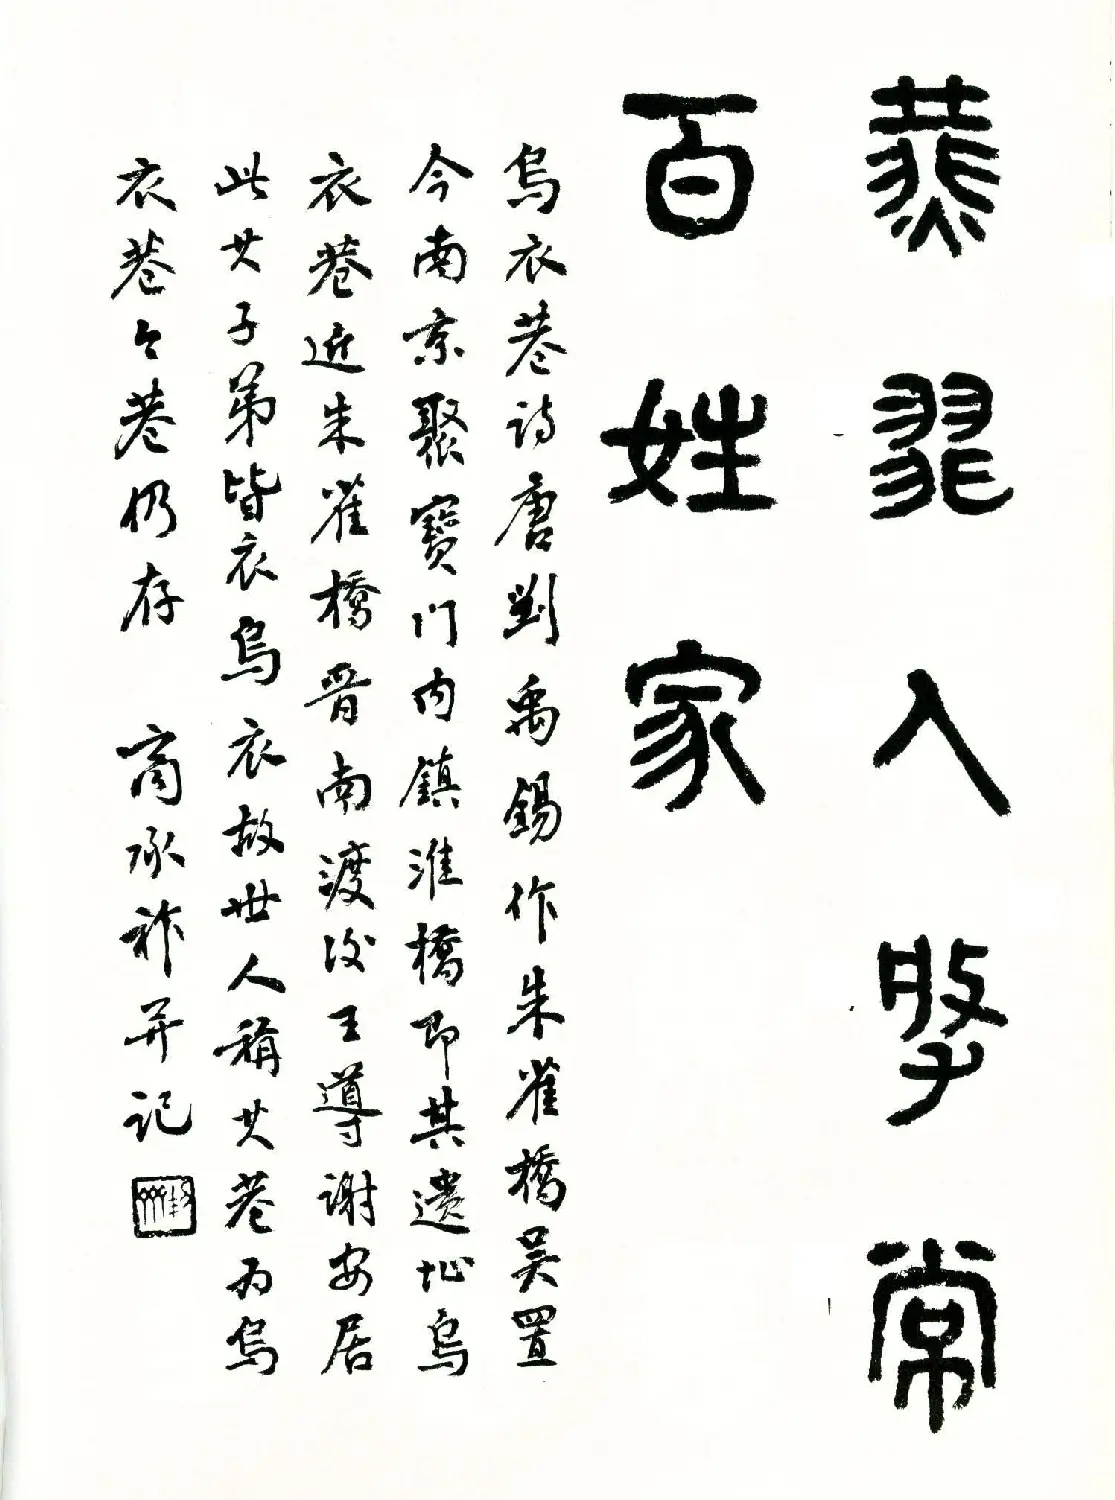 燕飛入尋常
百姓家
烏衣巷詩唐劉禹錫作朱雀橋吳置
今南京聚寶门内鎮淮橋即其遺址烏
衣巷近朱雀橋晋南渡後王導謝安居
此其子弟皆衣烏衣故世人稱其巷为烏
衣巷今巷仍存 商承祚并记